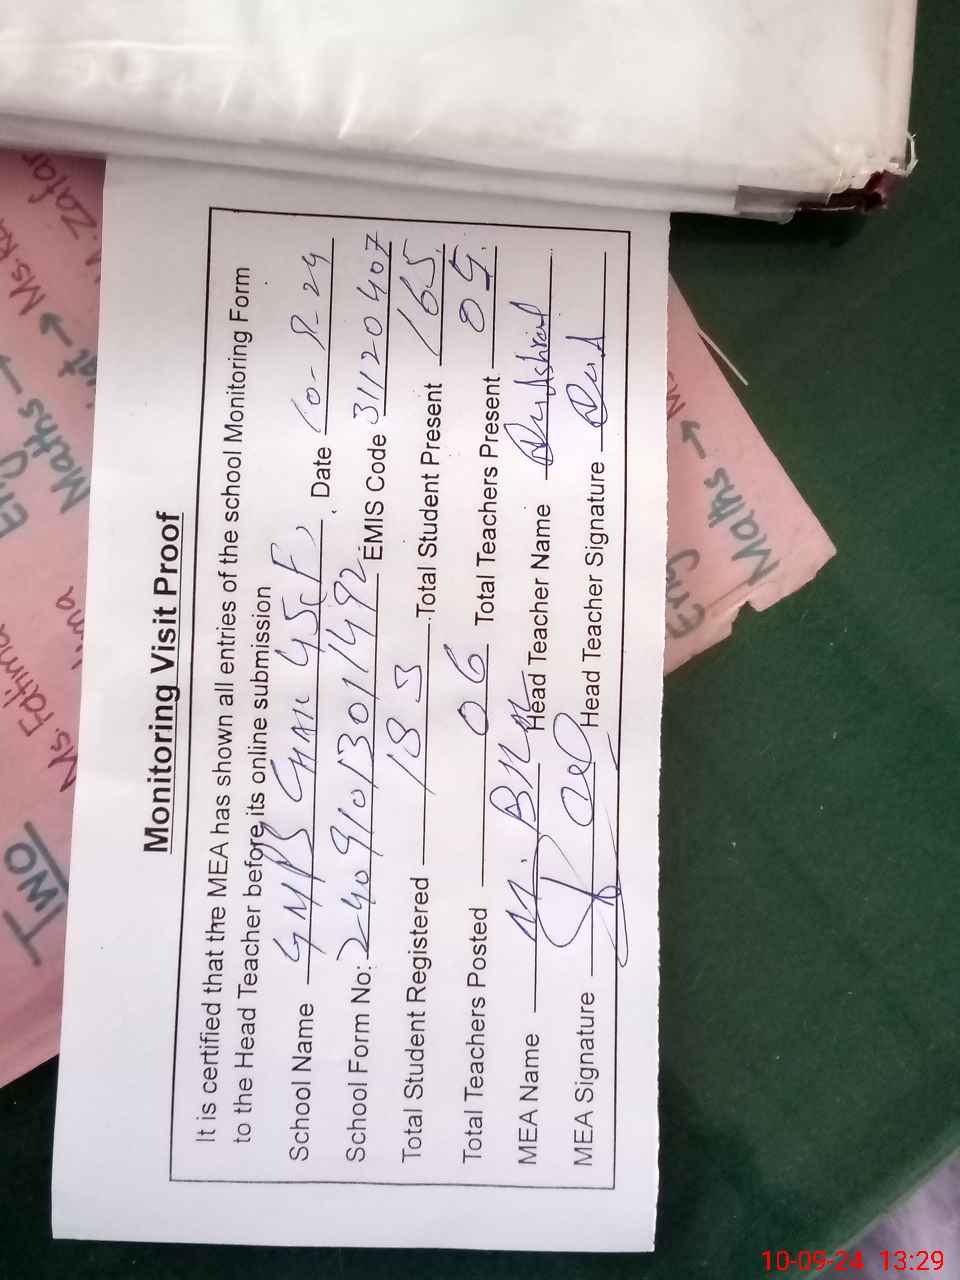 Monitoring Visit Proof
It is certified that the MEA has shown all entries of the school Monitoring Form
to the Head Teacher before its online submission
School Name GMPS CHAK 45 F Date 10- -24
School Form No: 2409101301492 EMIS Code 31120407
Total Student Registered 183 Total Student Present 165
Total Teachers Posted 06 Total Teachers Present 05
MEA Name M. Head Teacher Name
MEA Signature Head Teacher Signature
Two
Ms. Fatima
Eng →
Maths →
→ Ms.
Zafar
Eng
Maths →
10-09-24 13:29